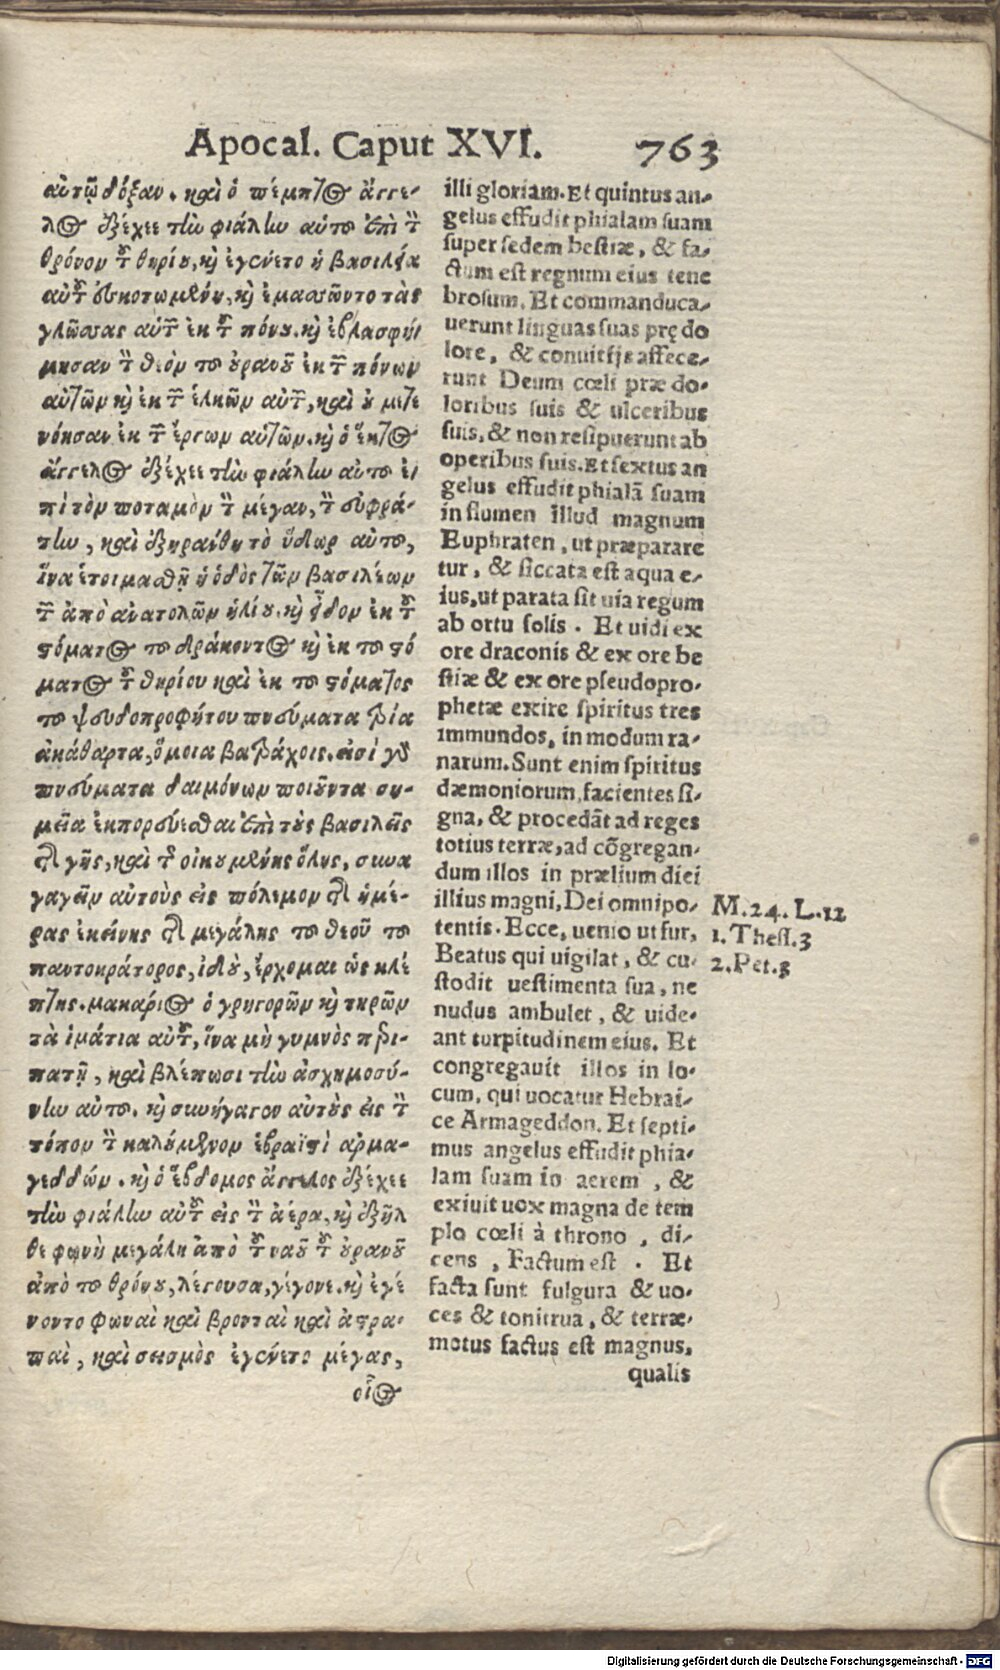 Apocal. Caput XVI. 763
αὐτῷ δόξαν. καὶ ὁ πέμπτος ἄγγε-
λος ἐξέχεε τὴν φιάλην αὐτοῦ ἐπὶ τὸν
θρόνον τοῦ θηρίου, καὶ ἐγένετο ἡ βασιλεία
αὐτοῦ ἐσκοτωμένη, καὶ ἐμασσῶντο τὰς
γλώσσας αὐτῶν ἐκ τοῦ πόνου. καὶ ἐβλασφή-
μησαν τὸν θεὸν τοῦ οὐρανοῦ ἐκ τῶν πόνων
αὐτῶν καὶ ἐκ τῶν ἑλκῶν αὐτῶν, καὶ οὐ μετε
νόησαν ἐκ τῶν ἔργων αὐτῶν. καὶ ὁ ἕκτος
ἄγγελος ἐξέχεε τὴν φιάλην αὐτοῦ ἐ-
πὶ τὸν ποταμὸν τὸν μέγαν, τὸν εὐφρά-
την, καὶ ἐξηράνθη τὸ ὕδωρ αὐτοῦ,
ἵνα ἑτοιμασθῇ ἡ ὁδὸς τῶν βασιλέων
τῶν ἀπὸ ἀνατολῶν ἡλίου. καὶ εἶδον ἐκ τοῦ
στόματος τοῦ δράκοντος καὶ ἐκ τοῦ στό
ματος τοῦ θηρίου καὶ ἐκ τοῦ στόματος
τοῦ ψευδοπροφήτου πνεύματα τρία
ἀκάθαρτα, ὅμοια βατράχοις. εἰσὶ γὰρ
πνεύματα δαιμόνων ποιοῦντα ση-
μεῖα ἐκπορεύεσθαι ἐπὶ τοὺς βασιλεῖς
τῆς γῆς, καὶ τῆς οἰκουμένης ὅλης, συνα
γαγεῖν αὐτοὺς εἰς πόλεμον τῆς ἡμέ-
ρας ἐκείνης τῆς μεγάλης τοῦ θεοῦ τοῦ
παντοκράτορος, ἰδοὺ, ἔρχομαι ὡς κλέ
πτης. μακάριος ὁ γρηγορῶν καὶ τηρῶν
τὰ ἱμάτια αὐτοῦ, ἵνα μὴ γυμνὸς περι-
πατῇ, καὶ βλέπωσι τὴν ἀσχημοσύ-
νην αὐτοῦ. καὶ συνήγαγον αὐτοὺς εἰς τὸν
τόπον τὸν καλούμενον ἑβραϊστὶ αρμα-
γεδδών. καὶ ὁ ἕβδομος ἄγγελος ἐξέχεε
τὴν φιάλην αὐτοῦ εἰς τὸν ἀέρα, καὶ ἐξῆλ
θε φωνὴ μεγάλη ἀπὸ τοῦ ναοῦ τοῦ οὐρανοῦ
ἀπὸ τοῦ θρόνου, λέγουσα, γέγονε. καὶ ἐγέ
νοντο φωναὶ καὶ βρονταὶ καὶ ἀστρα-
παὶ, καὶ σεισμὸς ἐγένετο μέγας,
οἷος
illi gloriam. Et quintus an-
gelus effudit phialam suam
super sedem bestiæ, & fa-
ctum est regnum eius tene
brosum. Et commanduca-
uerunt linguas suas prę do
lore, & conuitijs affece-
runt Deum cœli præ do-
loribus suis & ulceribus
suis, & non resipuerunt ab
operibus suis. Et sextus an
gelus effudit phialã suam
in flumen illud magnum
Euphraten, ut præparare
tur, & siccata est aqua e-
ius, ut parata sit uia regum
ab ortu solis. Et uidi ex
ore draconis & ex ore be
stiæ & ex ore pseudopro-
phetæ exire spiritus tres
immundos, in modum ra-
narum. Sunt enim spiritus
dæmoniorum facientes si-
gna, & procedãt ad reges
totius terræ, ad cõgregan-
dum illos in prælium diei
illius magni, Dei omnipo-
tentis. Ecce, uenio ut fur,
Beatus qui uigilat, & cu-
stodit uestimenta sua, ne
nudus ambulet, & uide-
ant turpitudinem eius. Et
congregauit illos in lo-
cum, qui uocatur Hebrai-
ce Armageddon. Et septi-
mus angelus effudit phia-
lam suam in aerem, &
exiuit uox magna de tem
plo cœli à throno, di-
cens, Factum est. Et
facta sunt fulgura & uo-
ces & tonitrua, & terræ-
motus factus est magnus,
qualis
M.24. L.12
1. Thess.3
2. Pet.3
Digitalisierung gefördert durch die Deutsche Forschungsgemeinschaft - DFG